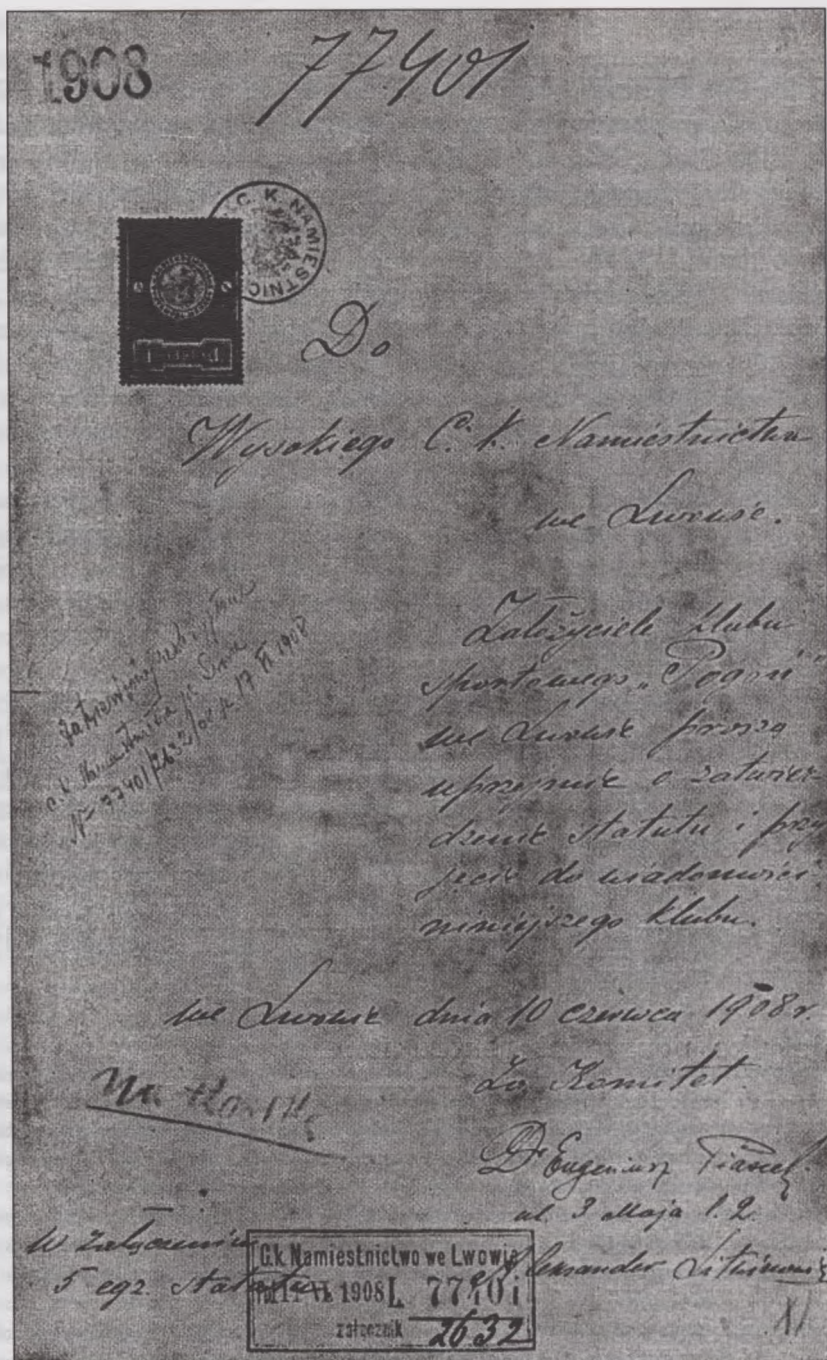 1908
77401
C. K. NAMIESTNIC
Do
Wysokiego C. k. Namiestnictwa
we Lwowie.
Założyciele klubu
sportowego „Pogoń”
we Lwowie proszą
uprzejmie o zatwier-
dzenie statutu i przy
jęcie do wiadomości
niniejszego klubu.
c. k. Namiestnictwa
Nr 77401/2632 17 VI 1908
we Lwowie dnia 10 czerwca 1908 r.
Za Komitet
Dr Eugeniusz Piasecki
ul. 3 Maja l. 2.
Aleksander Litwinowicz
W załączeniu
5 egz. statutu
C.k. Namiestnictwo we Lwowie
11 VI 1908 L 77401
załącznik 2632